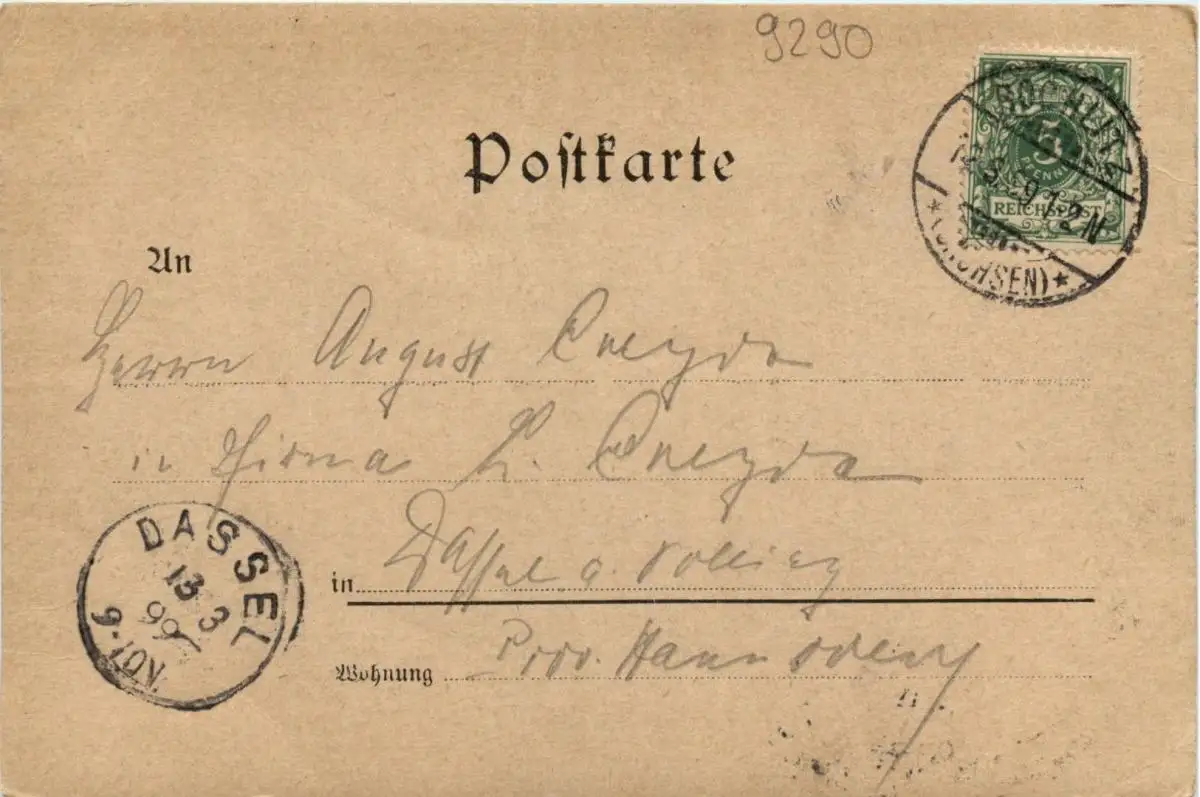 9290
Postkarte
5
PFENNIG
REICHSPOST
1-2 N
(SACHSEN)
An
Herrn August
in Firma L.
DASSEL
13 3
99
9-10V
in Dassel a. Solling
Wohnung Prov. Hannover